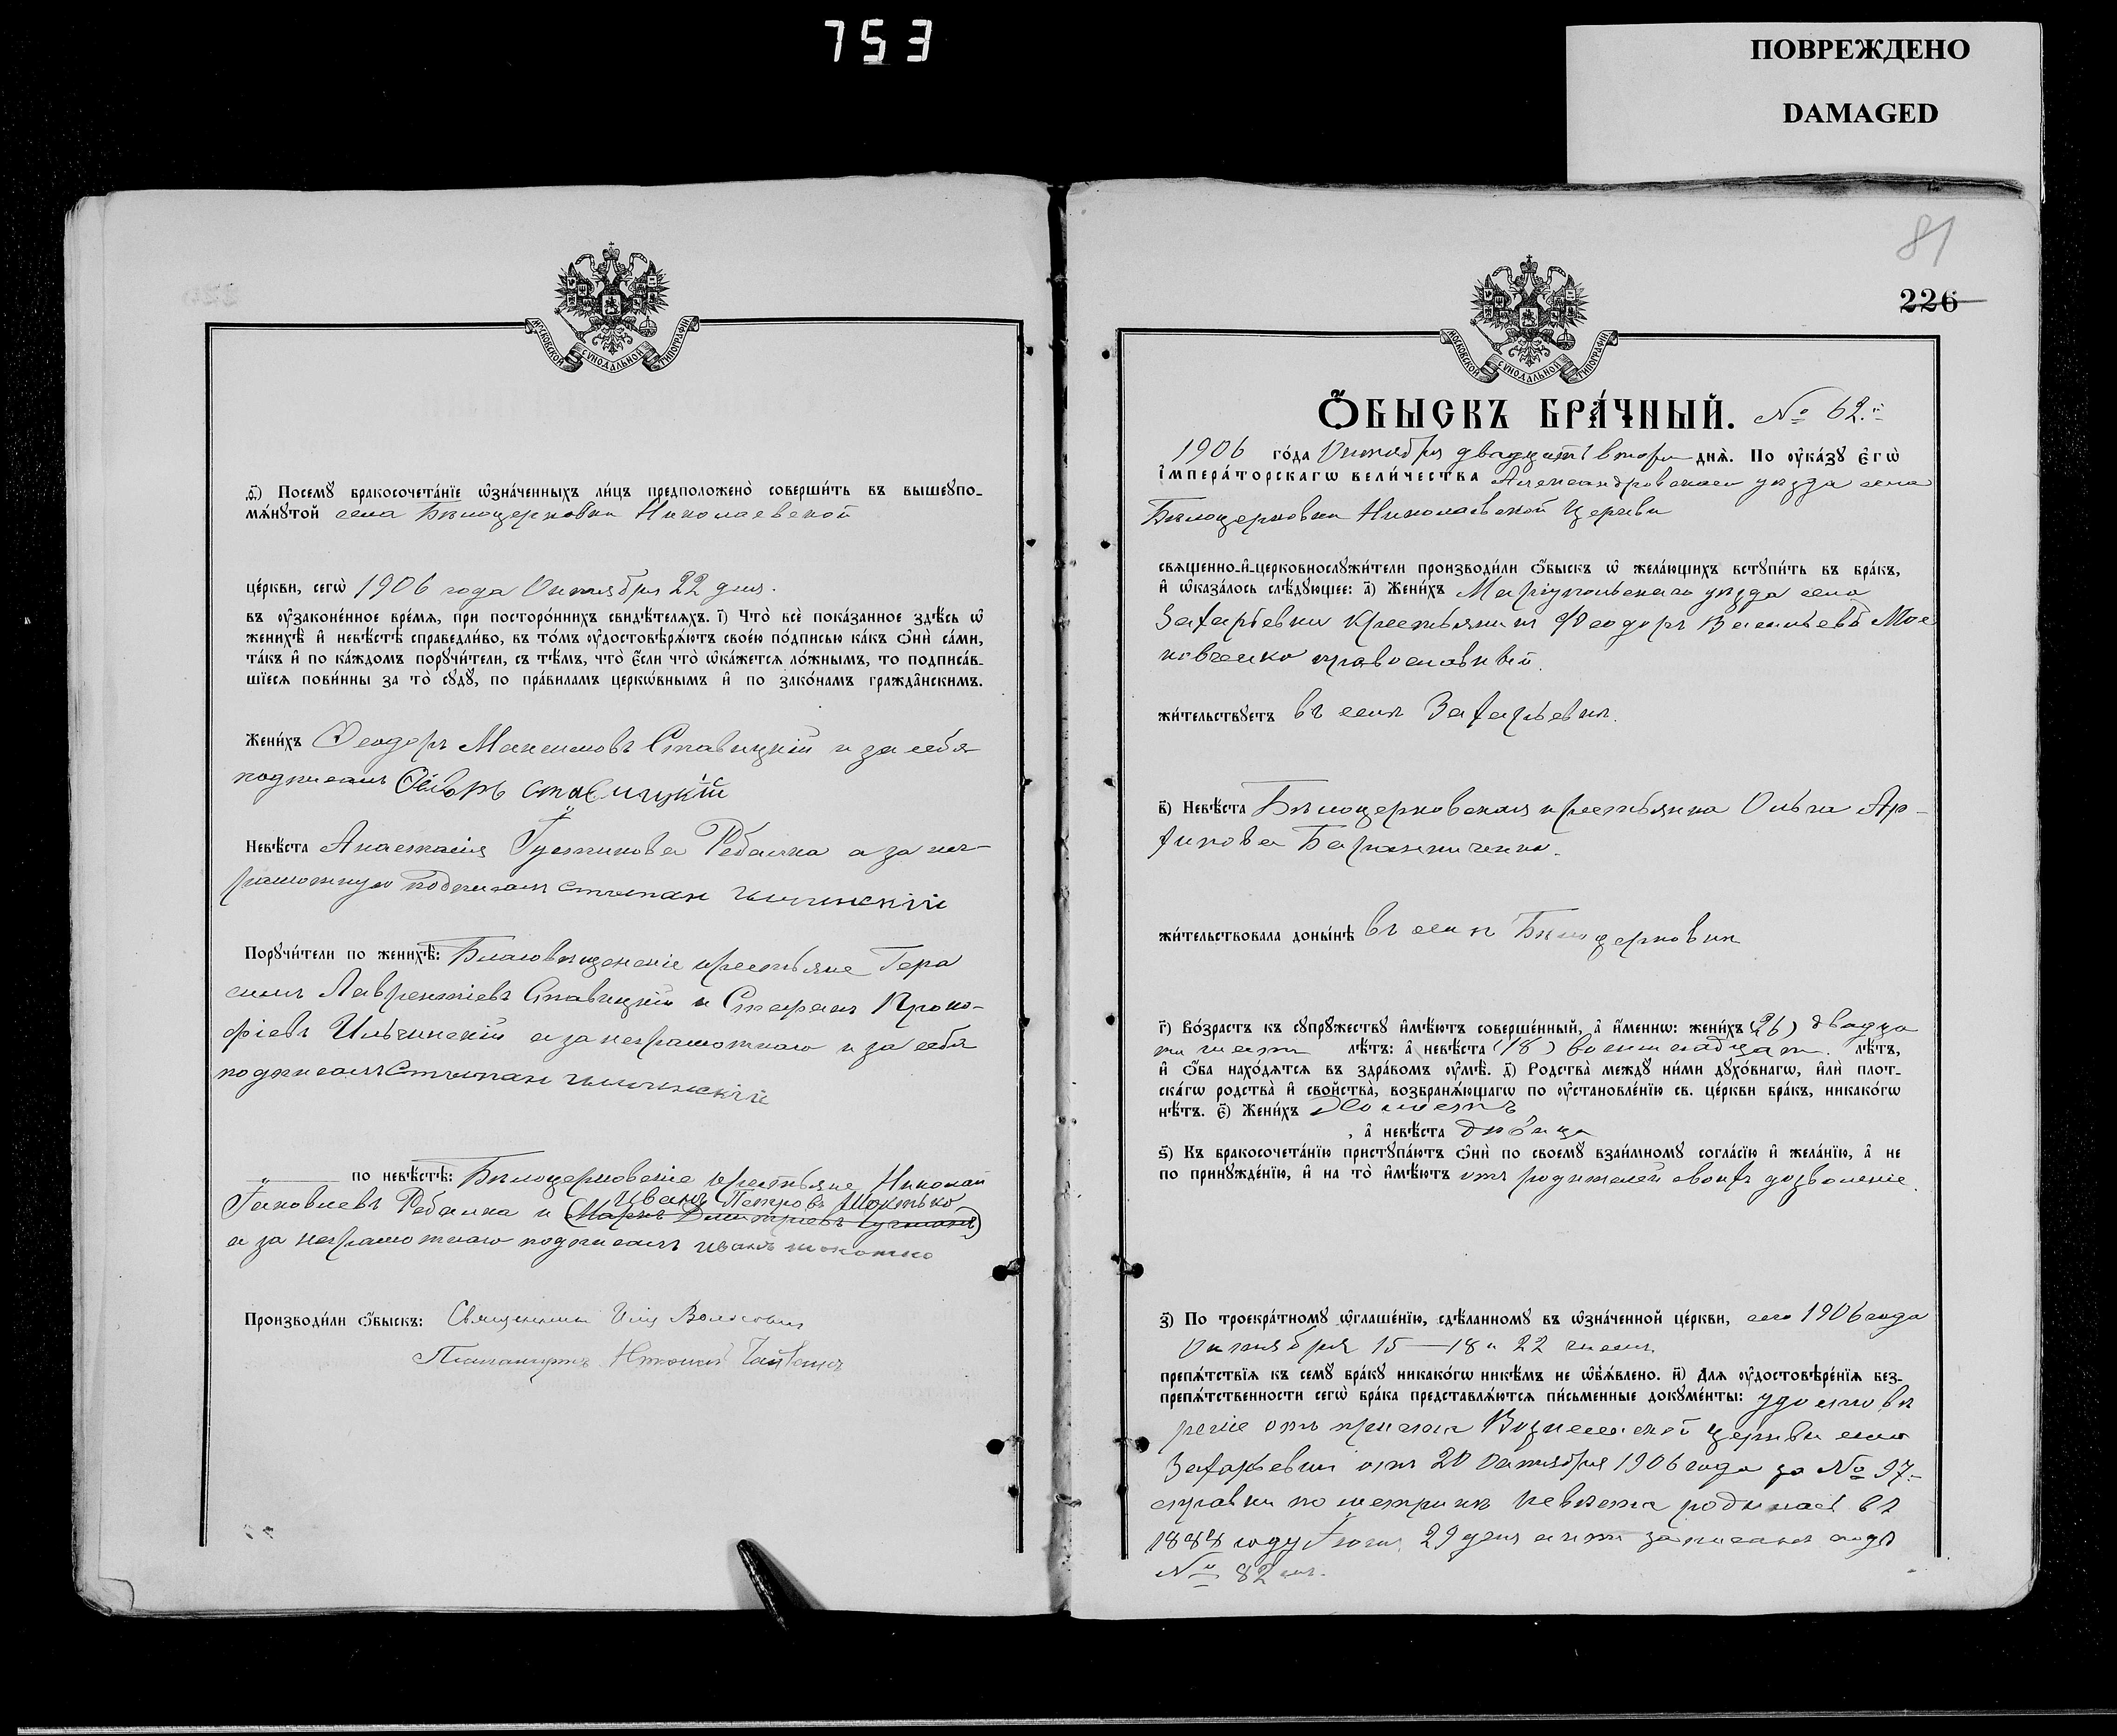 753
ПОВРЕЖДЕНО
DAMAGED
МОСКОВСКОЙ СѴНОДАЛЬНОЙ ТИПОГРАФІИ
ѳ҃) Посемꙋ̀ бракосочета́нїе ѡ҆зна́ченныхъ ли́цъ предположено̀ соверши́ть въ вышеꙋпо-
мѧ́нꙋтой села Бѣлоцерковки Николаевской
це́ркви, сегѡ̀ 1906 года Октября 22 дня.
въ ᲂу҆зако́ненное вре́мѧ, при посторо́ннихъ свидѣ́телѧхъ. і҃) Что̀ всѐ пока́занное здѣ́сь ѡ҆
женихѣ̀ и҆ невѣ́стѣ справедли́во, въ то́мъ ᲂу҆достовѣрѧ́ютъ свое́ю по́дписью ка́къ ѻ҆нѝ са́ми,
та́къ и҆ по ка́ждомъ порꙋчи́тели, съ тѣ́мъ, что̀ є҆́сли что̀ ѡ҆ка́жетсѧ ло́жнымъ, то подписа́в-
шїесѧ пови́нны за то̀ сꙋдꙋ̀, по пра́виламъ церкѡ́внымъ и҆ по зако́намъ гражда̑нскимъ.
Жени́хъ Ѳеодоръ Максимовъ Ставицкій и за себя
подписалъ Ѳедоръ ставицкій
Невѣ́ста Анастасія Рибалка а за не-
грамотную подписалъ степан ильчинскій
Порꙋчи́тели по женихѣ̀: Благовѣщенскіе крестьяне Гера
симъ Лаврентіевъ Ставицкій и Стефанъ Проко-
фіевъ Ильчинскій а за неграмотнаго и за себя
подписалъ степан ильчинскій
по невѣ́стѣ: Бѣлоцерковскіе крестьяне Николай
Иванъ Петровъ
Яковлевъ Рибалка и (Маркъ Дмитріевъ
а за неграмотнаго подписалъ иванъ
Производи́ли ѻ҆́быскъ: Священникъ
Псаломщикъ
81
226
МОСКОВСКОЙ СѴНОДАЛЬНОЙ ТИПОГРАФІИ
Ѻ҆́БЫСКЪ БРА́ЧНЫЙ. № 62.
1906 го́да Октября двадцать втор днѧ̀. По ᲂу҆ка́зꙋ є҆гѡ̀
і҆мпера́торскагѡ вели́чества Александровскаго уѣзда села
Бѣлоцерковки Николаевской Церкви
свѧщенно-и҆-церковнослꙋжи́тели производи́ли ѻ҆́быскъ ѡ҆ жела́ющихъ встꙋпи́ть въ бра́къ,
и҆ ѡ҆каза́лось слѣ́дꙋющее: а҃) Жени́хъ Маріупольскаго уѣзда села
Захарьевки крестьянинъ Ѳеодоръ Васильевъ Мос
ковченко православный.
жи́тельствꙋетъ въ селѣ Захарьевкѣ.
в҃) Невѣ́ста Бѣлоцерковская крестьянка Ольга Ар-
хипова
жи́тельствовала доны́нѣ въ селѣ Бѣлоцерковкѣ
г҃) Во́зрастъ къ сꙋпрꙋ́жествꙋ и҆мѣ́ютъ соверше́нный, а҆ и҆́меннѡ: жени́хъ (26) двадца
ти шести лѣ́тъ: а҆ невѣ́ста (18) восемнадцат. лѣ́тъ,
и҆ ѻ҆́ба нахо́дѧтсѧ въ здра́вомъ ᲂу҆мѣ̀. д҃) Родства̀ междꙋ̀ ни́ми дꙋхо́внагѡ, и҆лѝ плот-
ска́гѡ родства̀ и҆ свойства̀, возбранѧ́ющагѡ по ᲂу҆становле́нїю св. це́ркви бра́къ, никако́гѡ
нѣ́тъ. є҃) Жени́хъ Холостъ
, а҆ невѣ́ста дѣвица
ѕ҃) Къ бракосочета́нїю пристꙋпа́ютъ ѻ҆нѝ по своемꙋ̀ взаи́мномꙋ согла́сїю и҆ жела́нїю, а҆ не
по принꙋжде́нїю, и҆ на то̀ и҆мѣ́ютъ отъ родителей своихъ дозволеніе.
з҃) По троекра́тномꙋ ѡ҆глаше́нїю, сдѣ́ланномꙋ въ ѡ҆зна́ченной це́ркви, сего 1906 года
Октября 15—18 и 22 чиселъ
препѧ́тствїѧ къ семꙋ̀ бра́кꙋ никако́гѡ никѣ́мъ не ѡ҆б̾ѧ́влено. и҃) Длѧ ᲂу҆достовѣре́нїѧ без-
препѧ́тственности сегѡ̀ бра́ка представлѧ́ютсѧ пи́сьменные докꙋме́нты: удостовѣ
реніе отъ причта Вознесенской церкви села
Захарьевки отъ 20 Октября 1906 года за № 97.
справки по метрикѣ невѣста родилась въ
1888 году Іюля 29 дня актъ записанъ подъ
№ 82 мъ.